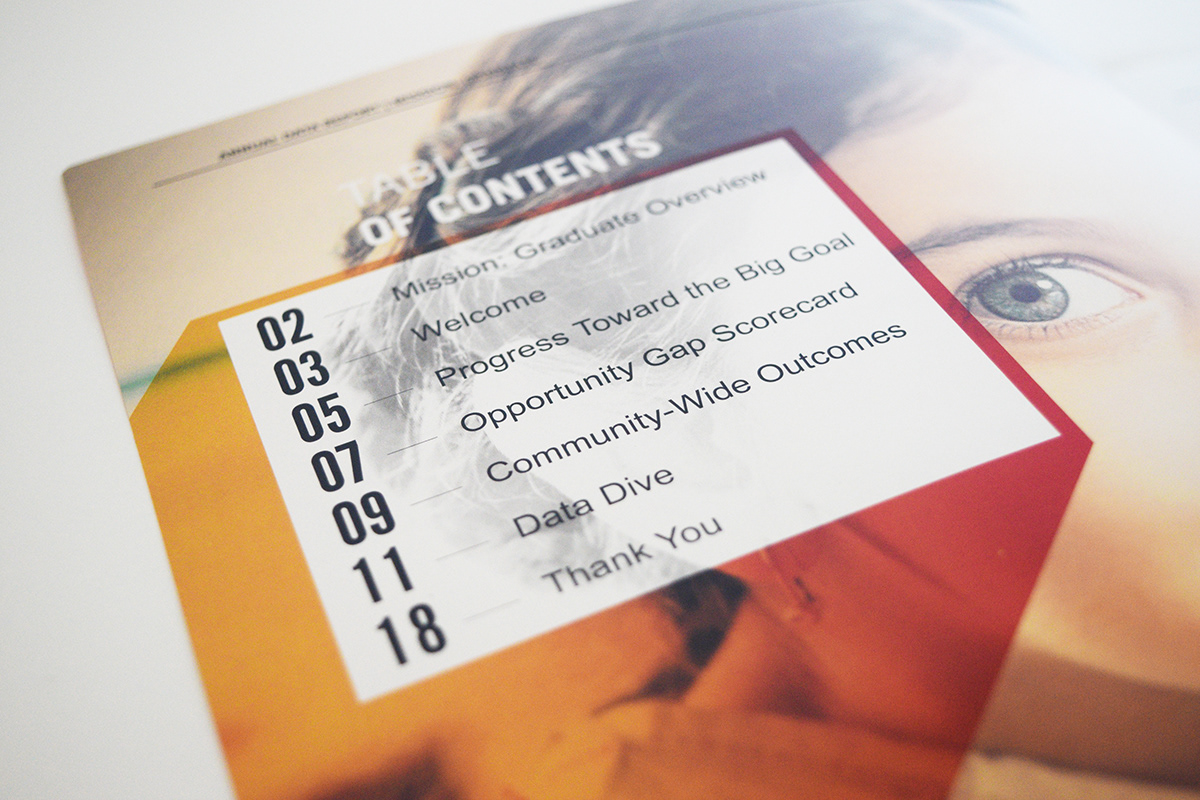 TABLE
OF CONTENTS
02 Mission: Graduate Overview
03 Welcome
05 Progress Toward the Big Goal
07 Opportunity Gap Scorecard
09 Community-Wide Outcomes
11 Data Dive
18 Thank You